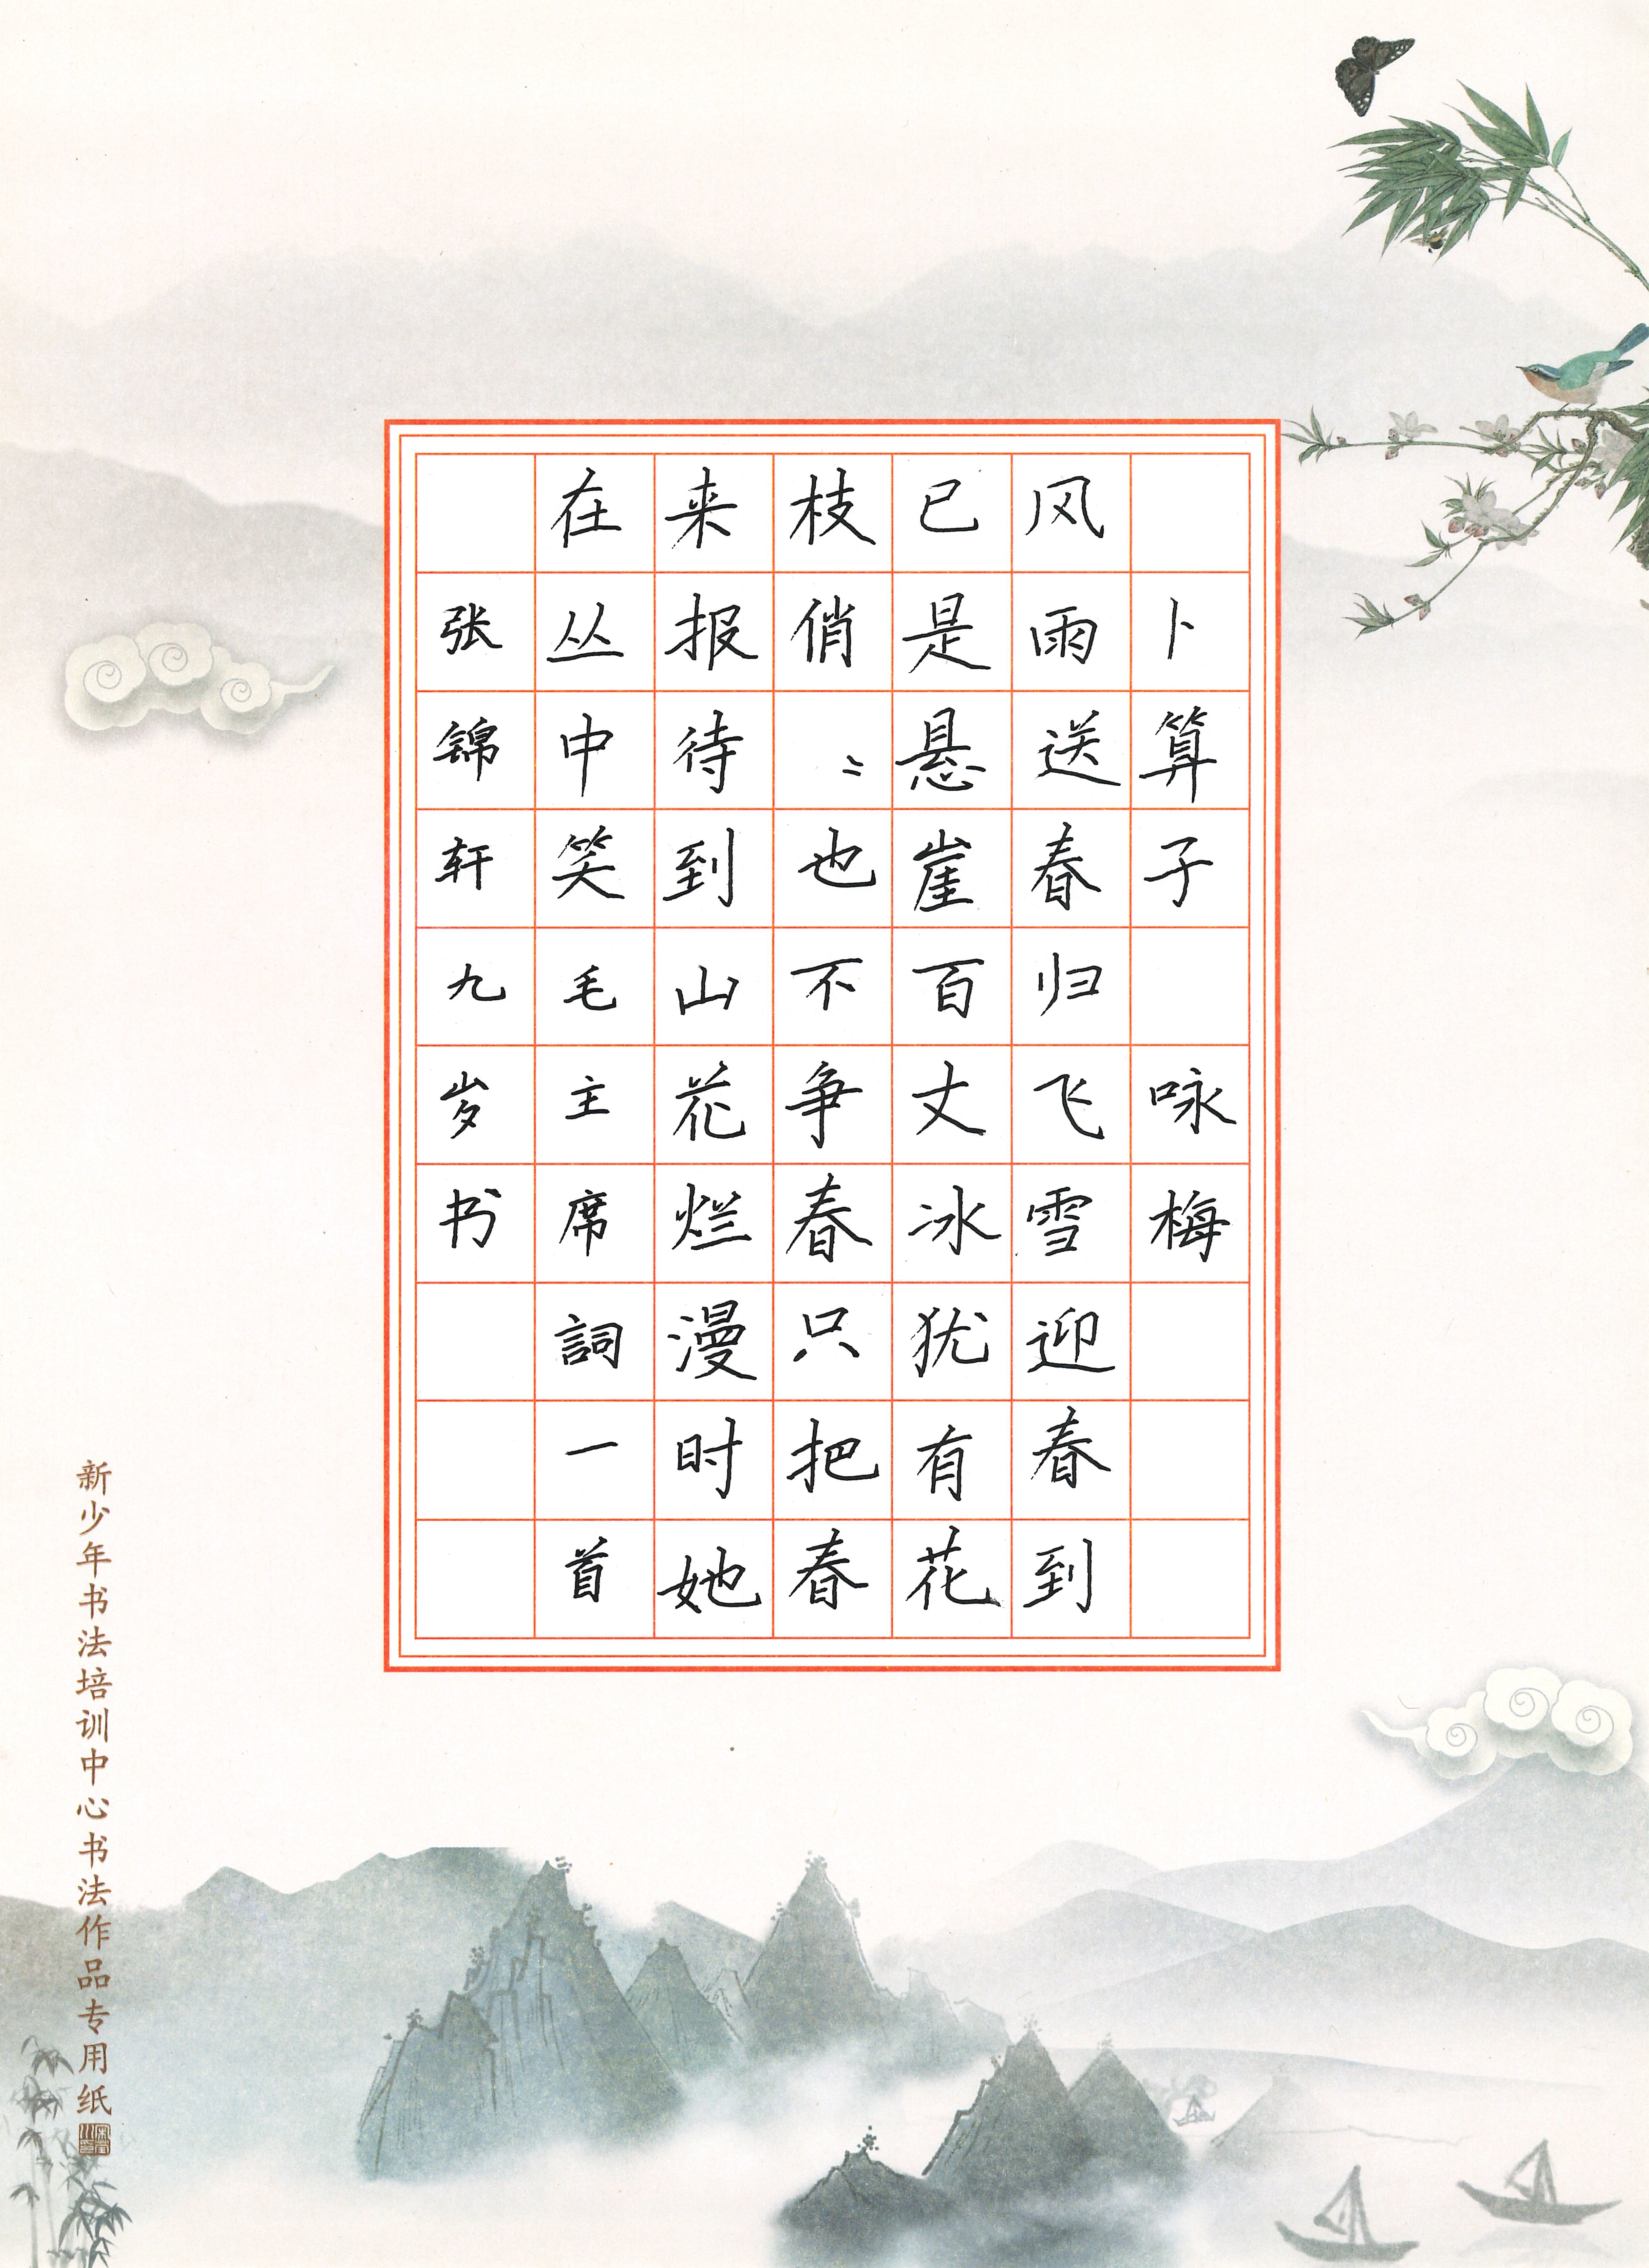 卜算子 咏梅
风雨送春归飞雪迎春到
已是悬崖百丈冰犹有花
枝俏〻也不争春只把春
来报待到山花烂漫时她
在丛中笑毛主席詞一首
张锦轩九岁书
新少年书法培训中心书法作品专用纸